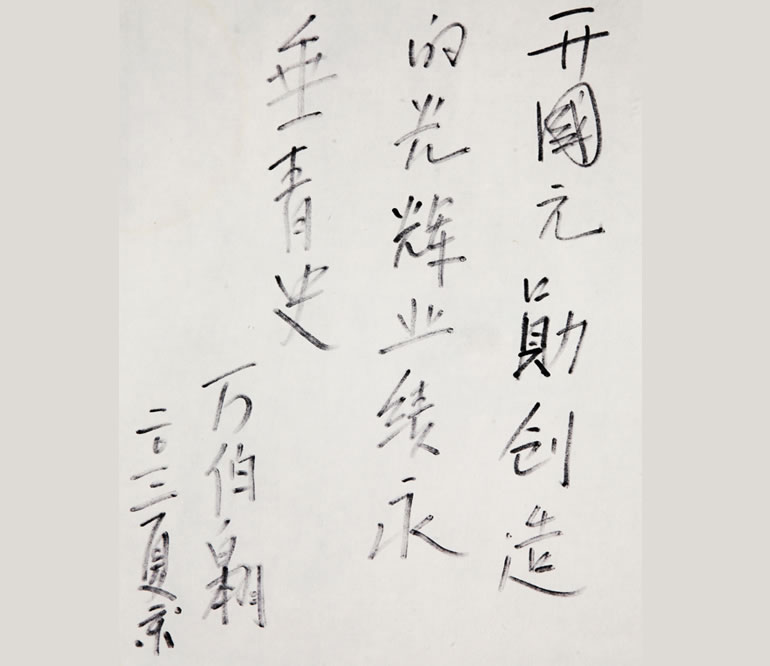 开國元勛创造
的光辉业绩永
垂青史
万伯翱
二〇一三夏京